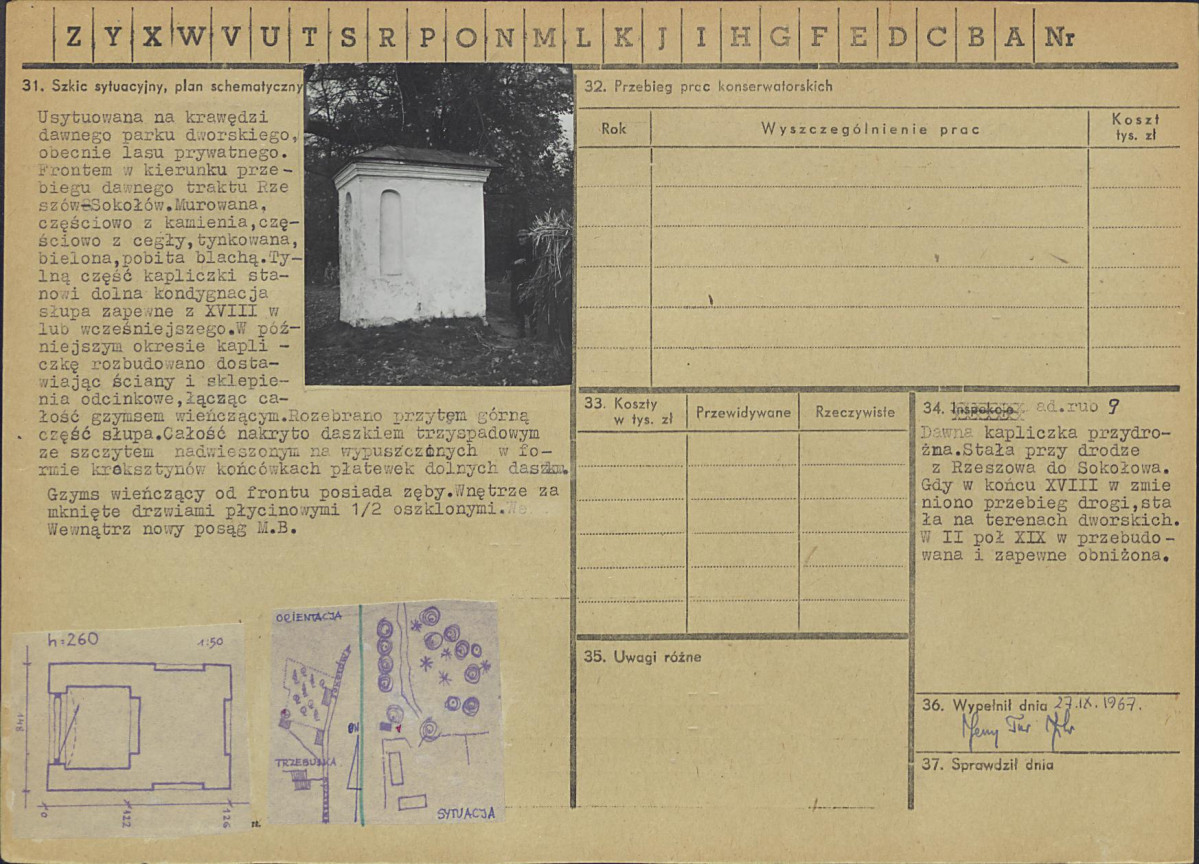 Z Y X W V U T S R P O N M L K J I H G F E D C B A Nr
31. Szkic sytuacyjny, plan schematyczny
Usytuowana na krawędzi
dawnego parku dworskiego,
obecnie lasu prywatnego.
Frontem w kierunku prze-
biegu dawnego traktu Rze
szów-Sokołów.Murowana,
częściowo z kamienia,czę-
ściowo z cegły,tynkowana,
bielona,pobita blachą.Ty-
lną część kapliczki sta-
nowi dolna kondygnacja
słupa zapewne z XVIII w
lub wcześniejszego.W póź-
niejszym okresie kapli -
czkę rozbudowano dosta-
wiając ściany i sklepie-
nia odcinkowe,łącząc ca-
łość gzymsem wieńczącym.Rozebrano przytem górną
część słupa.Całość nakryto daszkiem trzyspadowym
ze szczytem nadwieszonym na wypuszczonych w fo-
rmie kroksztynów końcówkach płatewek dolnych daszku.
Gzyms wieńczący od frontu posiada zęby.Wnętrze za
mknięte drzwiami płycinowymi 1/2 oszklonymi.
Wewnątrz nowy posąg M.B.
h=260 1:50
148
0 122 126
ORIENTACJA
SOKOŁÓW
TRZEBUSKA
SYTUACJA
32. Przebieg prac konserwatorskich
Rok Wyszczególnienie prac Koszt tys. zł
33. Koszty w tys. zł Przewidywane Rzeczywiste
34. Inspekcje ad.rub 9
Dawna kapliczka przydro-
żna.Stała przy drodze
z Rzeszowa do Sokołowa.
Gdy w końcu XVIII w zmie
niono przebieg drogi,sta
ła na terenach dworskich.
W II poł XIX w przebudo-
wana i zapewne obniżona.
35. Uwagi różne
36. Wypełnił dnia 27.IX.1967.
37. Sprawdził dnia